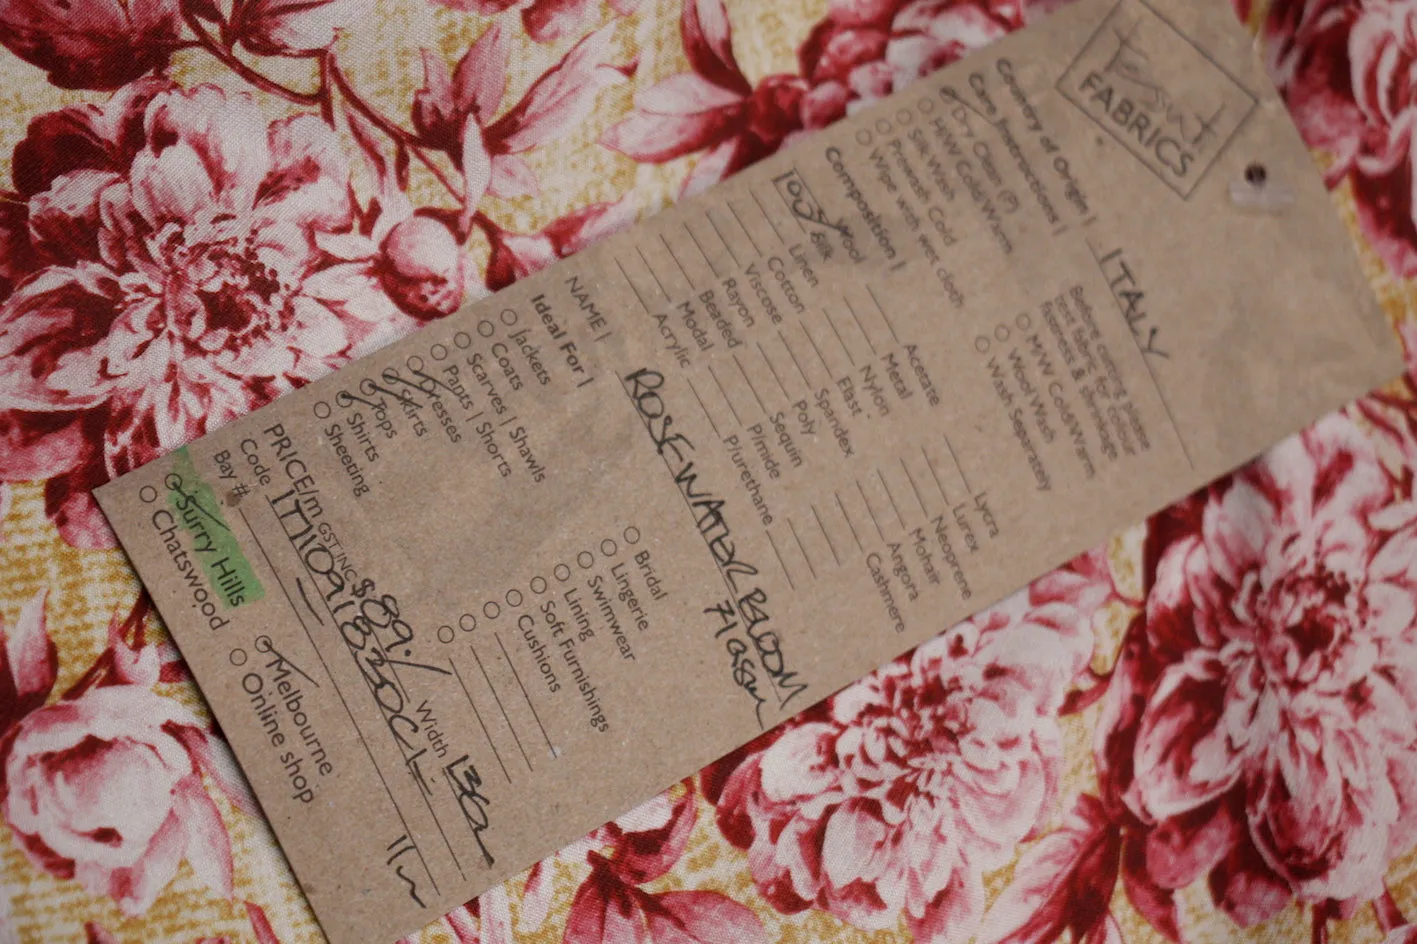 FABRICS
Country of Origin | ITALY
Care Instructions |
Before cutting please
test fabric for colour
fastness & shrinkage.
Dry Clean (P)
H/W Cold/Warm
Silk Wash
Prewash Cold
Wipe with wet cloth
M/W Cold/Warm
Wool Wash
Wash Separately
Composition |
Wool
100% Silk
Linen
Cotton
Viscose
Rayon
Beaded
Modal
Acrylic
Acetate
Metal
Nylon
Elast
Spandex
Poly
Sequin
P/mide
P/urethane
Lycra
Lurex
Neoprene
Mohair
Angora
Cashmere
NAME | ROSEWATER BLOOM
Ideal For |
Jackets
Coats
Scarves | Shawls
Pants | Shorts
Dresses
Skirts
Tops
Shirts
Sheeting
Bridal
Lingerie
Swimwear
Lining
Soft Furnishings
Cushions
PRICE/m GST INC $89./ Width 136
Code
Bay #
Surry Hills
Chatswood
Melbourne
Online shop